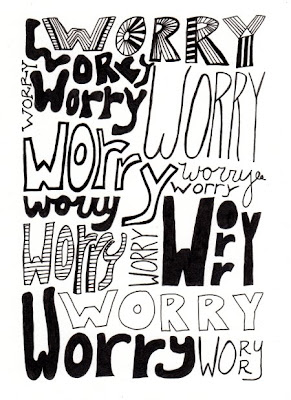 WORRY
WORRY
WORRY
Worry
WORRY
Worry
worry
worry
worry
Worry
WORRY
WORRY
WORRY
Worry
WORRY